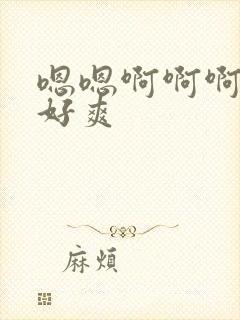 嗯嗯啊啊啊
好爽
麻煩